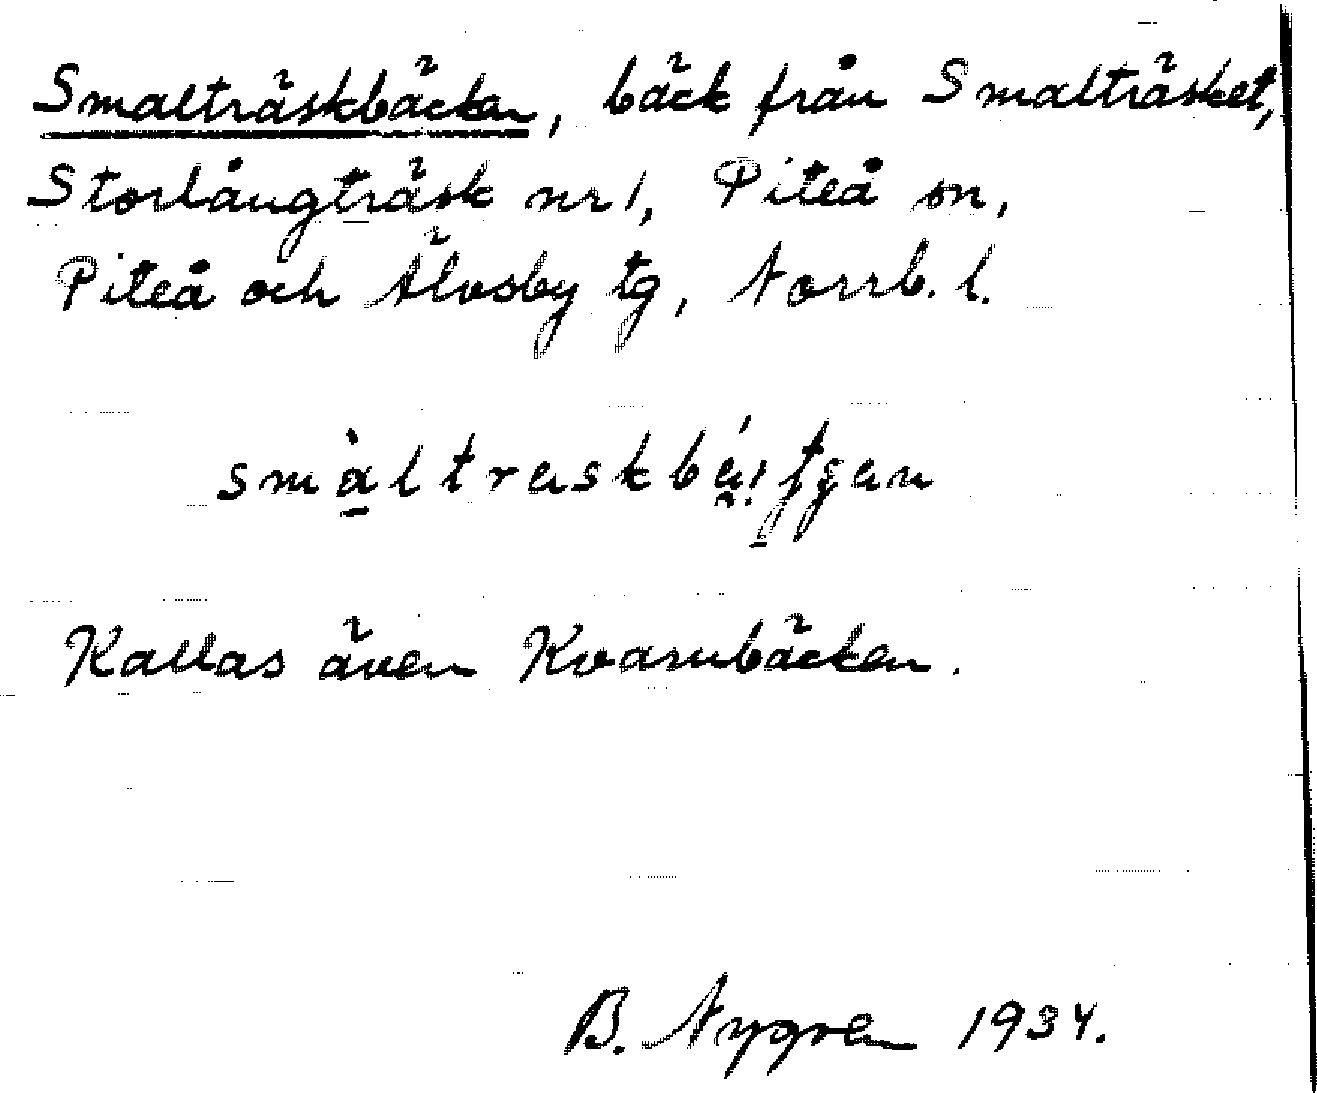 Smalträskbäcken, bäck från Smalträsket,
Storlångträsk nr 1, Piteå sn,
Piteå och Älvsby tg, Norrb. l.
Kallas även Kvarnbäcken.
B. Nygren 1934.